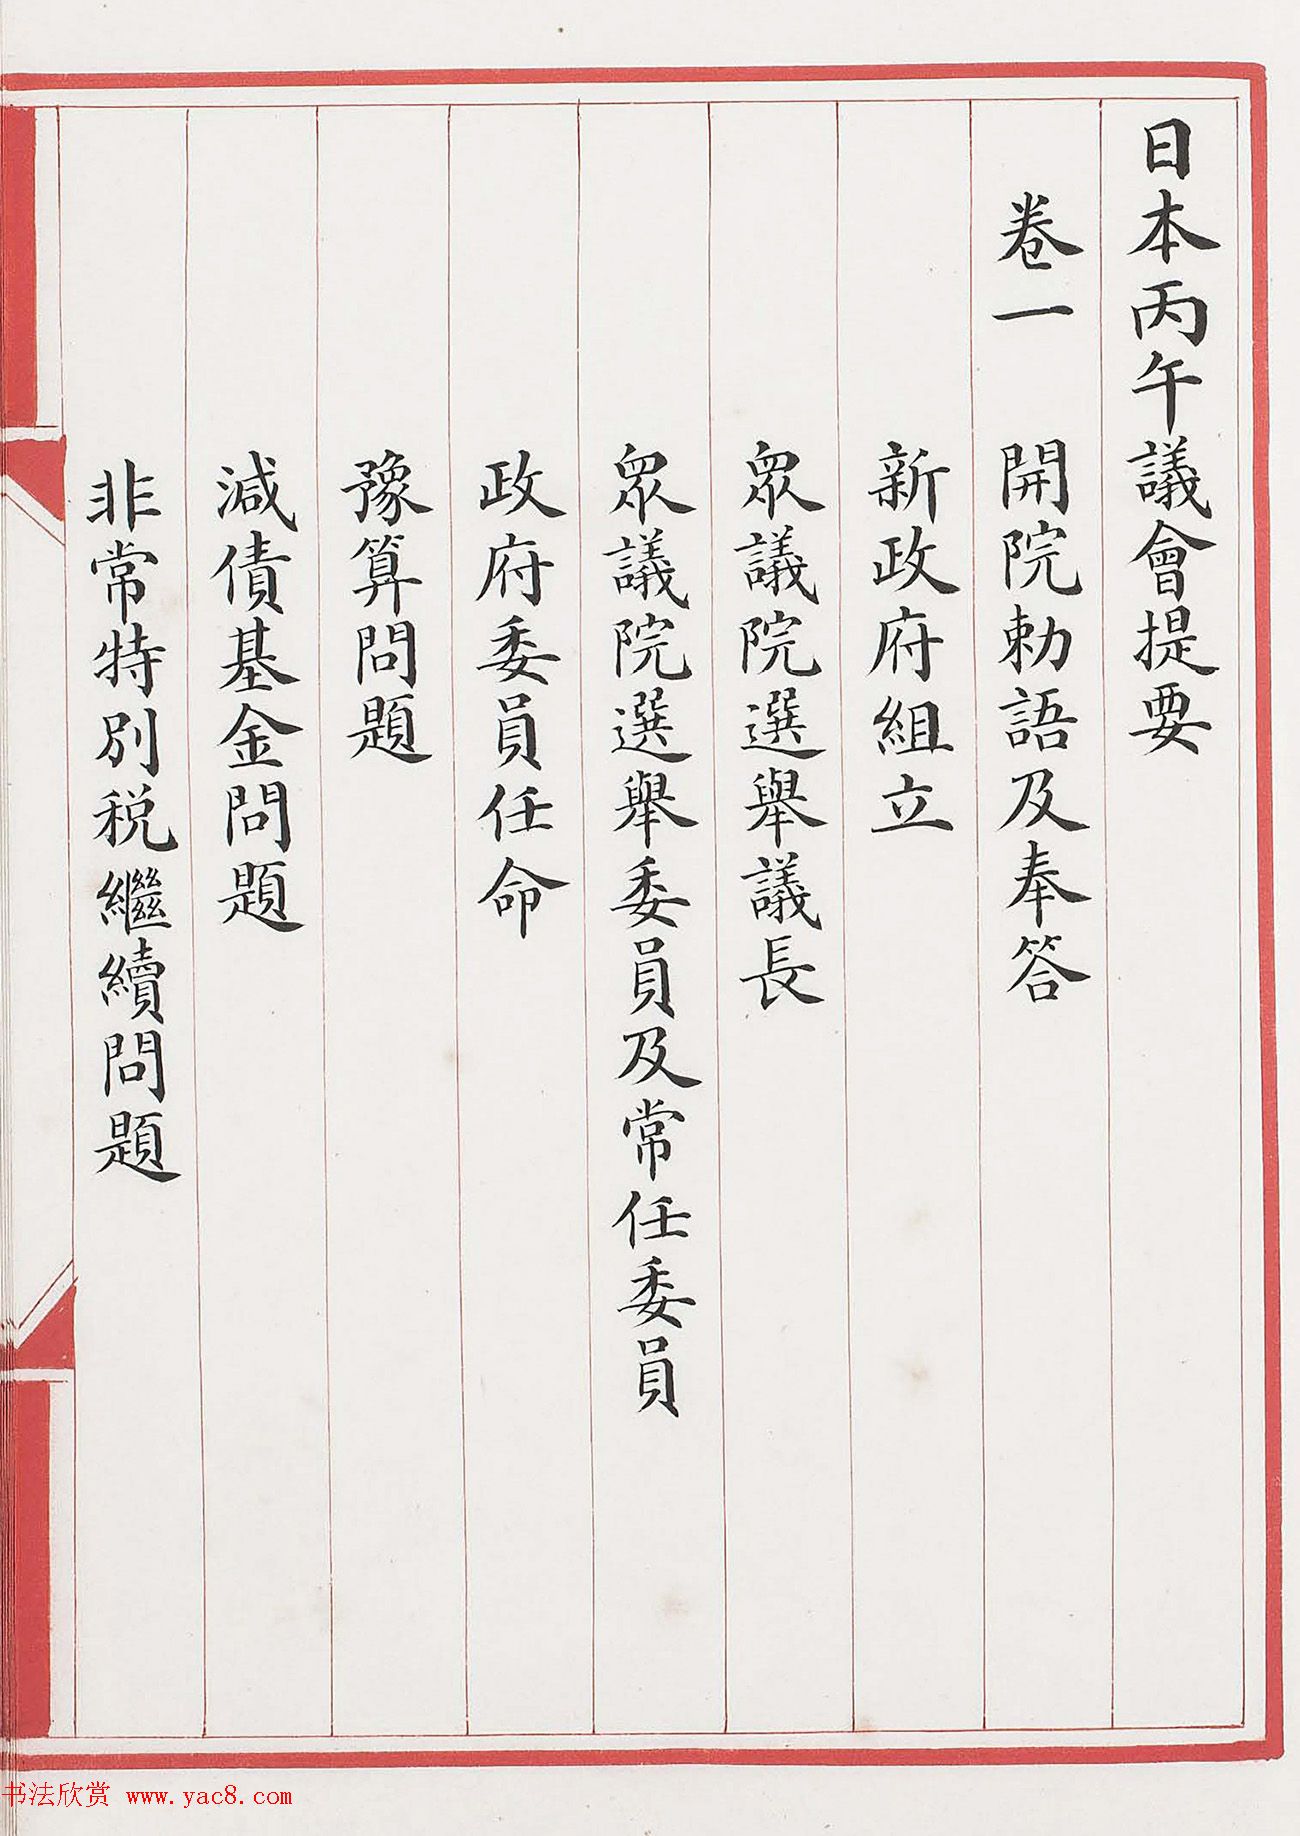 日本丙午議會提要
卷一 開院勅語及奉答
新政府組立
眾議院選舉議長
眾議院選舉委員及常任委員
政府委員任命
豫算問題
減債基金問題
非常特別税繼續問題
书法欣赏 www.yac8.com